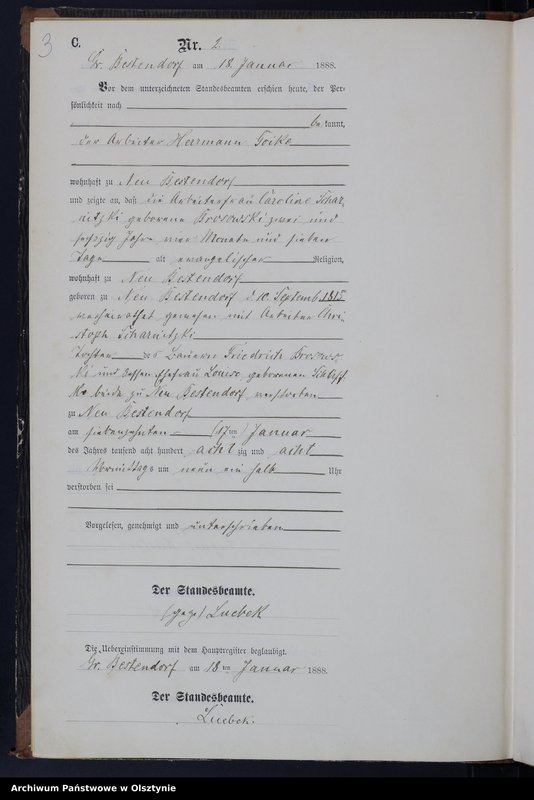 3
C. Nr. 2
Gr. Bestendorf am 18 Januar 1888.
Vor dem unterzeichneten Standesbeamten erschien heute, der Per-
sönlichkeit nach
be kannt,
der Arbeiter Herrmann
wohnhaft zu Neu Bestendorf
und zeigte an, daß die Arbeiterfrau Caroline Schar
nitzki geborene Brosowski zwei und
sechszig Jahre vier Monate und sieben
Tage alt evangelischer Religion,
wohnhaft zu Neu Bestendorf
geboren zu Neu Bestendorf d 10. Septemb.
verheirathet gewesen mit Arbeiter Chri-
stoph Scharnitzki
Tochter des Bauern Friedrich Brosows
ki und dessen Ehefrau Louise geborenen
beide zu Neu Bestendorf verstorben
zu Neu Bestendorf
am siebenzehnten (17ten) Januar
des Jahrs tausend acht hundert acht zig und acht
Vormittags um neun ein halb Uhr
verstorben sei
Vorgelesen, genehmigt und unterschrieben
Der Standesbeamte.
(gez) Luebeck
Die Uebereinstimmung mit dem Hauptregister beglaubigt.
Gr. Bestendorf am 18ten Januar 1888.
Der Standesbeamte.
Luebeck.
Archiwum Państwowe w Olsztynie